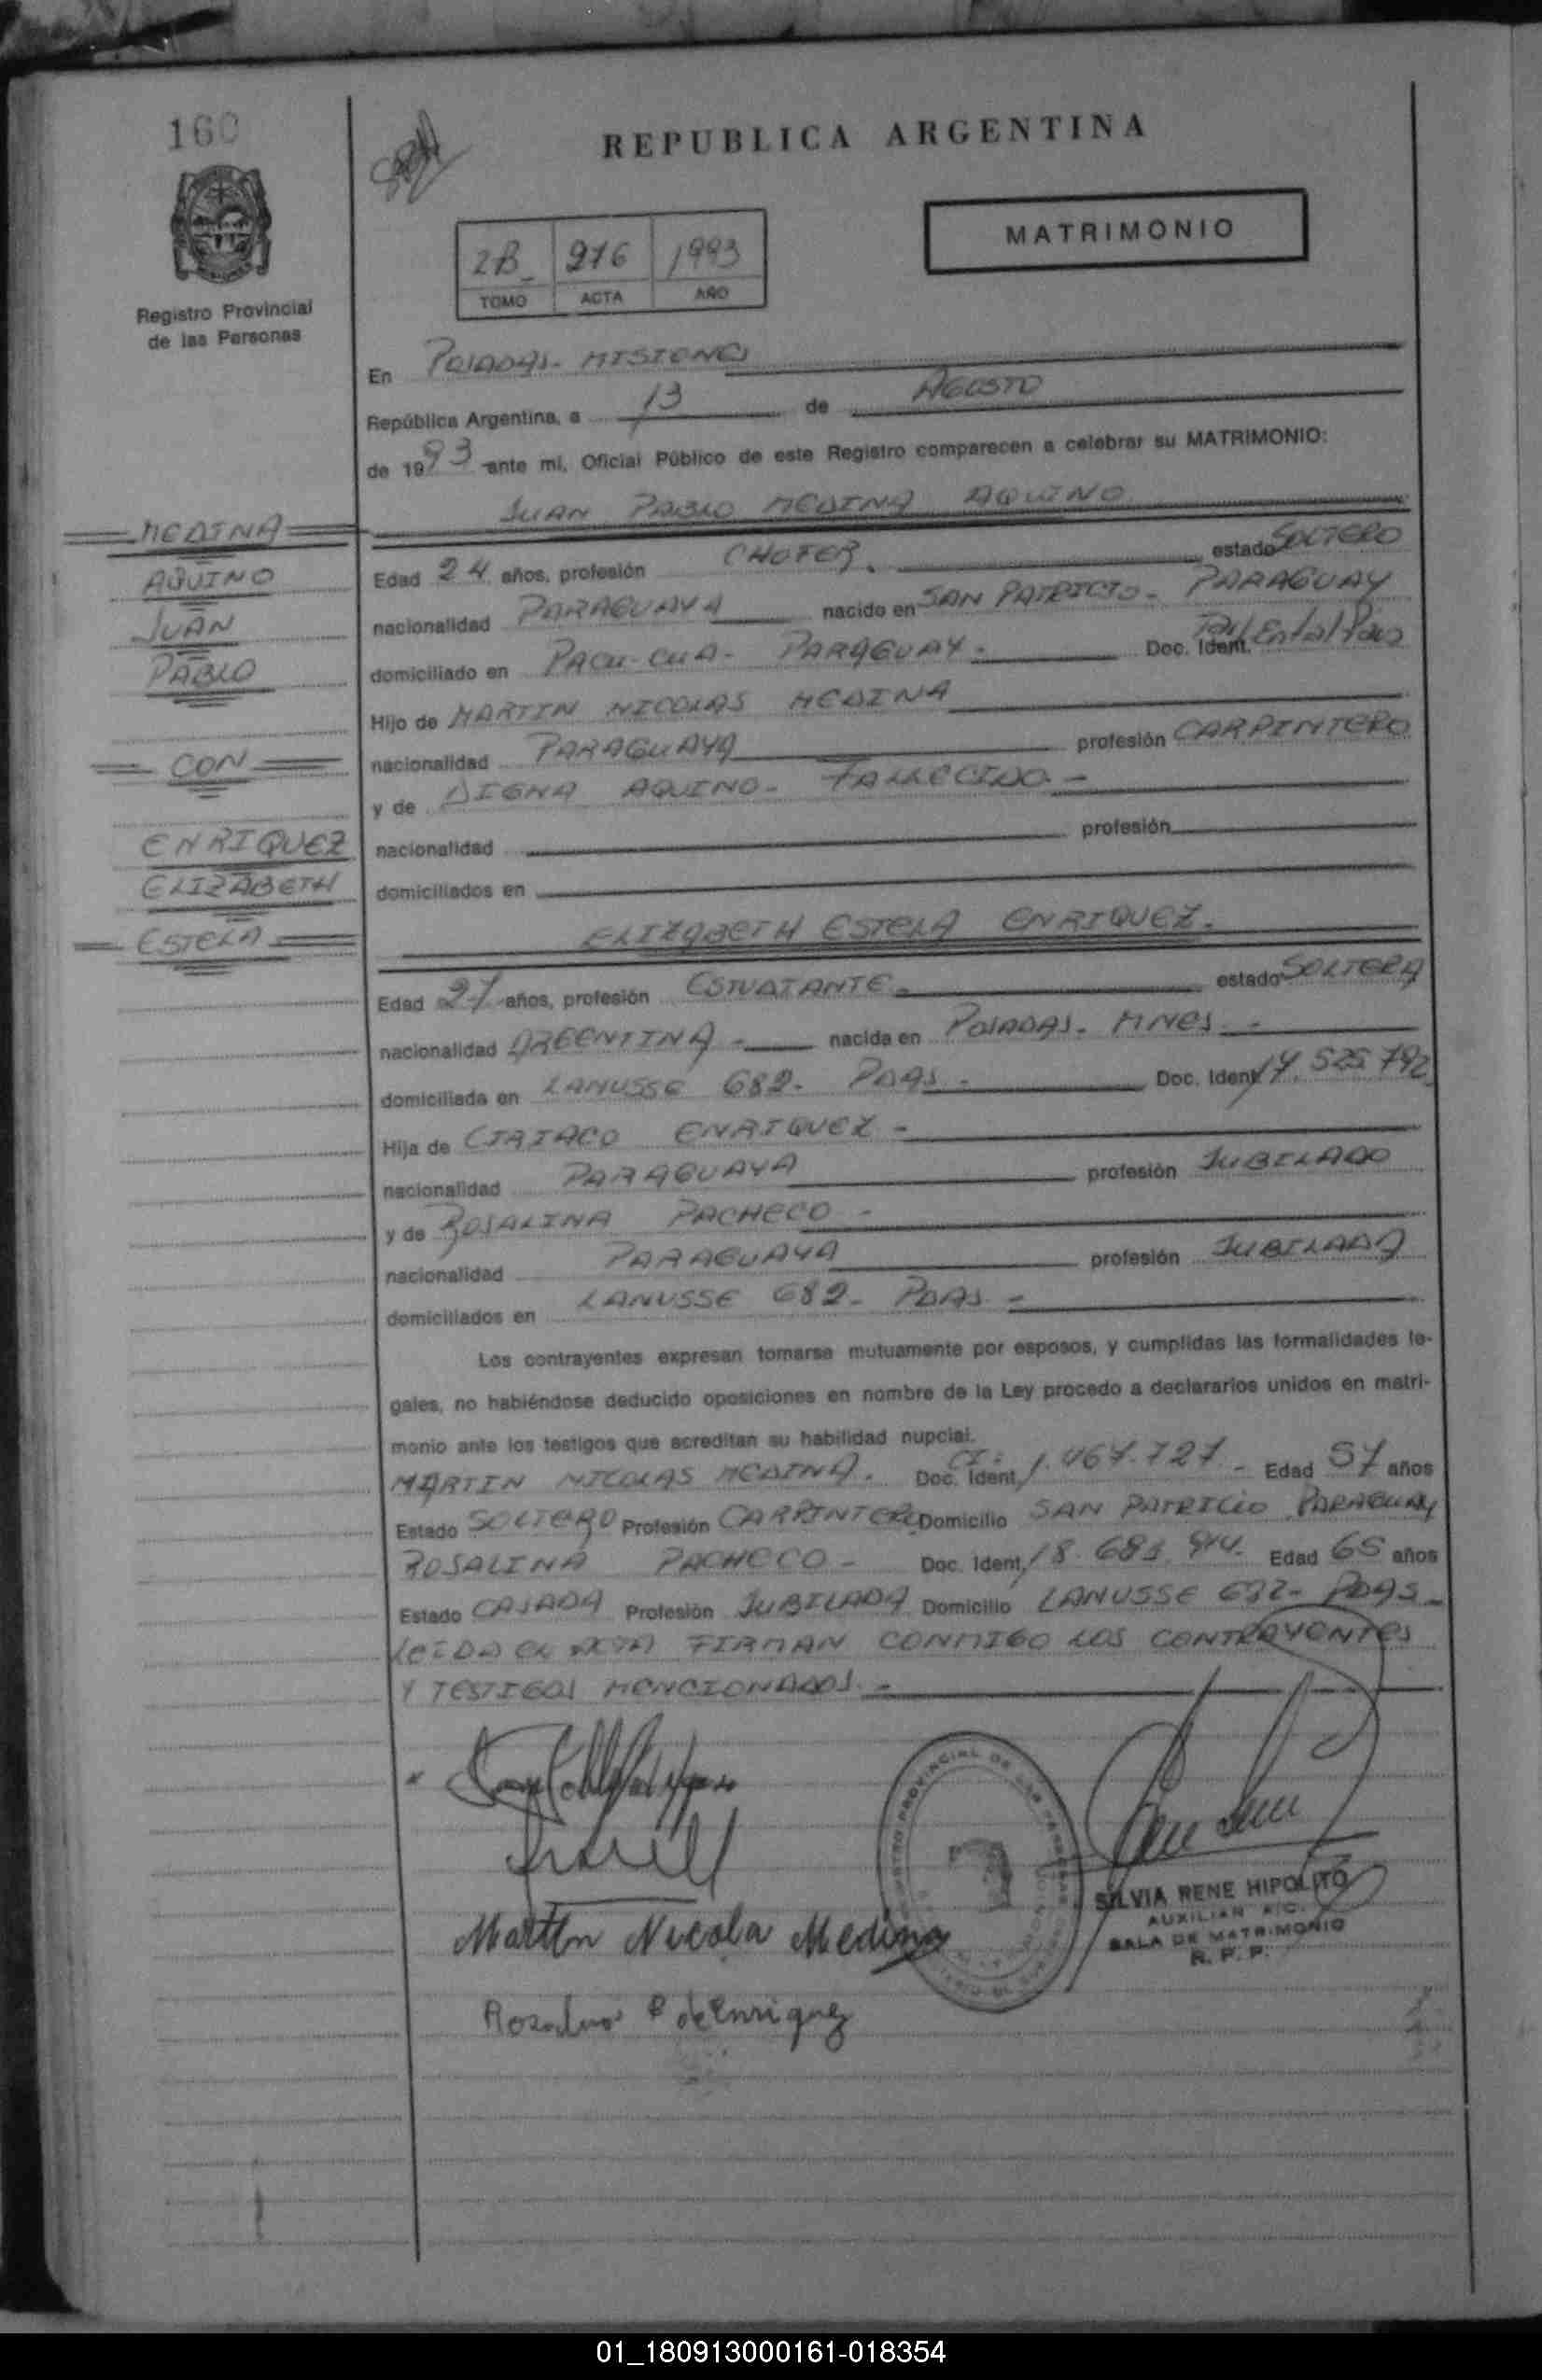 160
REPUBLICA ARGENTINA
MATRIMONIO
2B 276 1993
TOMO ACTA AÑO
Registro Provincial
de las Personas
En POSADAS - MISIONES
República Argentina, a 13 de AGOSTO
de 1993 ante mi, Oficial Público de este Registro comparecen a celebrar su MATRIMONIO:
JUAN PABLO MEDINA AQUINO
MEDINA
AQUINO
JUAN
PABLO
CON
ENRIQUEZ
ELIZABETH
ESTELA
Edad 24 años, profesión CHOFER. estado SOLTERO
nacionalidad PARAGUAYA nacido en SAN PATRICIO - PARAGUAY
domiciliado en PACU-CUA - PARAGUAY - Doc. Ident.
Hijo de MARTIN NICOLAS MEDINA
nacionalidad PARAGUAYA profesión CARPINTERO
y de DIGNA AQUINO - FALLECIDO -
nacionalidad profesión
domiciliados en
ELIZABETH ESTELA ENRIQUEZ.
Edad 27 años, profesión ESTUDIANTE - estado SOLTERA
nacionalidad ARGENTINA - nacida en POSADAS - MNES -
domiciliada en LANUSSE 682 - PDAS - Doc. Ident. 17.525.792
Hija de CIRIACO ENRIQUEZ -
nacionalidad PARAGUAYA profesión JUBILADO
y de ROSALINA PACHECO -
nacionalidad PARAGUAYA profesión JUBILADA
domiciliados en LANUSSE 682 - PDAS -
Los contrayentes expresan tomarse mutuamente por esposos, y cumplidas las formalidades le-
gales, no habiéndose deducido oposiciones en nombre de la Ley procedo a declararlos unidos en matri-
monio ante los testigos que acreditan su habilidad nupcial.
MARTIN NICOLAS MEDINA. Doc. Ident. CI: 1.467.727 - Edad 57 años
Estado SOLTERO Profesión CARPINTERO Domicilio SAN PATRICIO PARAGUAY
ROSALINA PACHECO - Doc. Ident. 18.683.914. Edad 65 años
Estado CASADA Profesión JUBILADA Domicilio LANUSSE 682 - PDAS -
LEIDA EL ACTA FIRMAN CONMIGO LOS CONTRAYENTES
Y TESTIGOS MENCIONADOS. -
Martin Nicola Medina
Rosalina P de Enriquez
SILVIA RENE HIPOLITO
AUXILIAR A/C.
SALA DE MATRIMONIO
R. P. P.
01_180913000161-018354